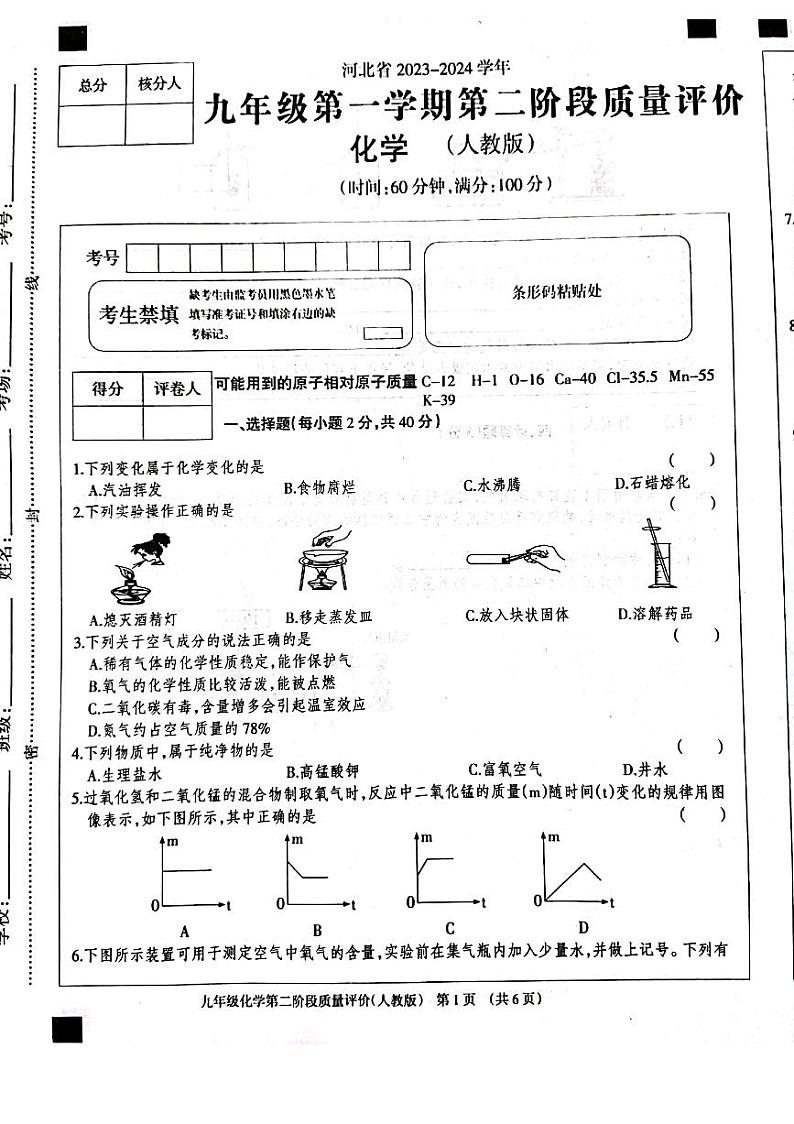 河北省 2023-2024 学年
九年级第一学期第二阶段质量评价
化学 （人教版）
（时间:60 分钟,满分:100 分）
总分 核分人
考号
考生禁填
缺考生由监考员用黑色墨水笔
填写准考证号和填涂右边的缺
考标记。
条形码粘贴处
得分 评卷人
可能用到的原子相对原子质量 C-12 H-1 O-16 Ca-40 Cl-35.5 Mn-55
K-39
一、选择题(每小题 2 分,共 40 分)
1.下列变化属于化学变化的是 ( )
A.汽油挥发 B.食物腐烂 C.水沸腾 D.石蜡熔化
2.下列实验操作正确的是 ( )
A.熄灭酒精灯 B.移走蒸发皿 C.放入块状固体 D.溶解药品
3.下列关于空气成分的说法正确的是 ( )
A.稀有气体的化学性质稳定,能作保护气
B.氧气的化学性质比较活泼,能被点燃
C.二氧化碳有毒,含量增多会引起温室效应
D.氮气约占空气质量的 78%
4.下列物质中,属于纯净物的是 ( )
A.生理盐水 B.高锰酸钾 C.富氧空气 D.井水
5.过氧化氢和二氧化锰的混合物制取氧气时,反应中二氧化锰的质量(m)随时间(t)变化的规律用图
像表示,如下图所示,其中正确的是 ( )
m m m m
0 t 0 t 0 t 0 t
A B C D
6.下图所示装置可用于测定空气中氧气的含量,实验前在集气瓶内加入少量水,并做上记号。下列有
九年级化学第二阶段质量评价(人教版) 第 1 页 (共 6 页)
学校: 班级: 姓名: 考场: 考号:
密 封 线
7.
8